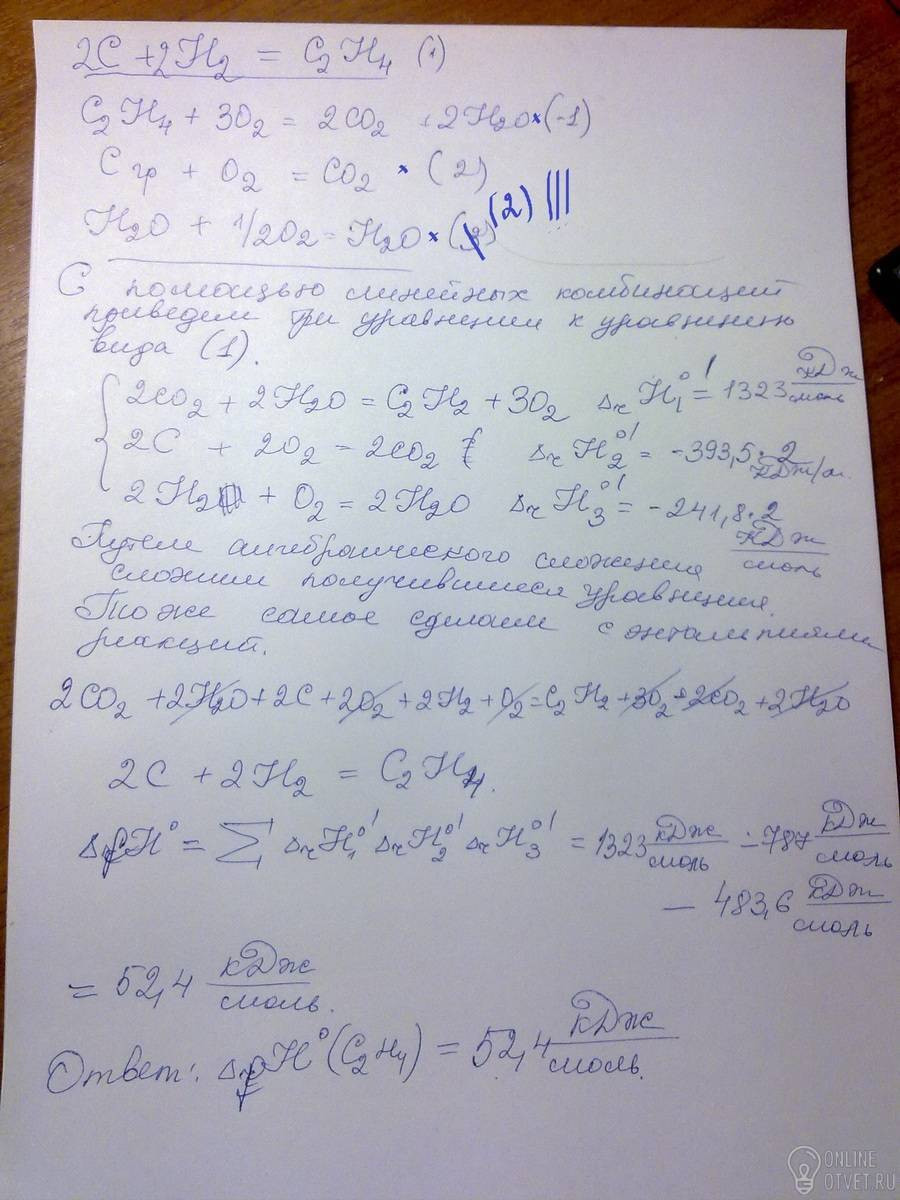 2C + 2H₂ = C₂H₄ (1)
C₂H₄ + 3O₂ = 2CO₂ + 2H₂O × (-1)
C гр + O₂ = CO₂ × (2)
H₂O + 1/2O₂ = H₂O × (2) (2) !!!
С помощью линейных комбинаций
приведем три уравнения к уравнению
вида (1).
2CO₂ + 2H₂O = C₂H₂ + 3O₂ ΔrH₁°' = 1323 кДж/моль
2C + 2O₂ = 2CO₂ ΔrH₂°' = -393,5·2 кДж/м.
2H₂ + O₂ = 2H₂O ΔrH₃°' = -241,8·2 кДж/моль
Путем алгебраического сложения
сложим получившиеся уравнения.
Тоже самое сделаем с энтальпиями
реакций.
2CO₂ + 2H₂O + 2C + 2O₂ + 2H₂ + O₂ = C₂H₂ + 3O₂ + 2CO₂ + 2H₂O
2C + 2H₂ = C₂H₄.
ΔfH° = Σ ΔrH₁°' ΔrH₂°' ΔrH₃°' = 1323 кДж/моль - 787 кДж/моль
- 483,6 кДж/моль
= 52,4 кДж/моль.
Ответ: ΔfH°(C₂H₄) = 52,4 кДж/моль.
ONLINE
OTVET.RU